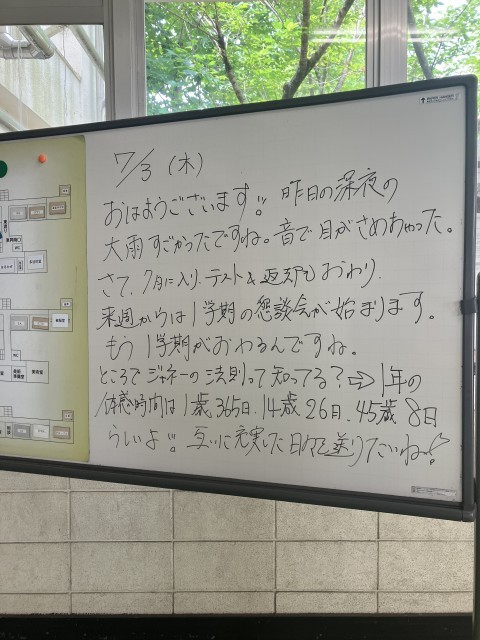 7/3 (木)
おはようございます!! 昨日の深夜の
大雨すごかったですね。音で目がさめちゃった。
さて、7月に入り、テスト&返却もおわり、
来週からは1学期の懇談会が始まります。
もう1学期がおわるんですね。
ところでジャネーの法則って知ってる?⇒1年の
体感時間は1歳365日、14歳26日、45歳8日
らしいよ!! 互いに充実した日々を送りたいね!